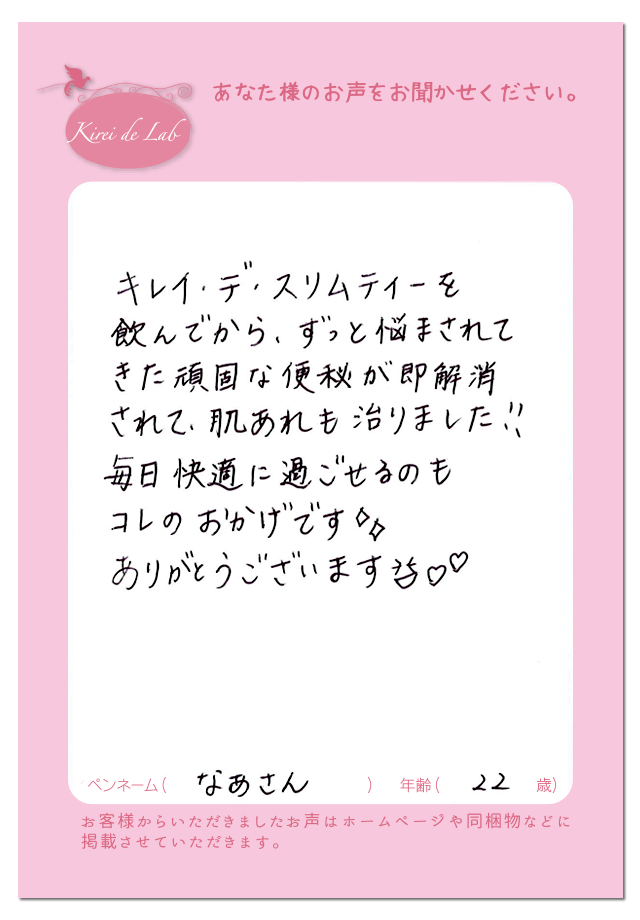 あなた様のお声をお聞かせください。
Kirei de Lab
キレイ・デ・スリムティーを
飲んでから、ずっと悩まされて
きた頑固な便秘が即解消
されて、肌あれも治りました!!
毎日快適に過ごせるのも
コレのおかげです
ありがとうございます
ペンネーム( なあさん ) 年齢( 22 歳)
お客様からいただきましたお声はホームページや同梱物などに
掲載させていただきます。